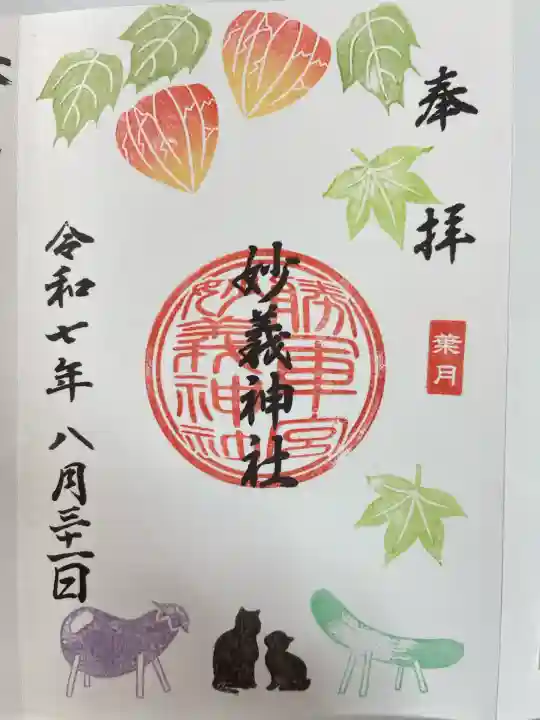 奉拝
葉月
妙義神社
勝軍宮
妙義神社
令和七年八月三十一日